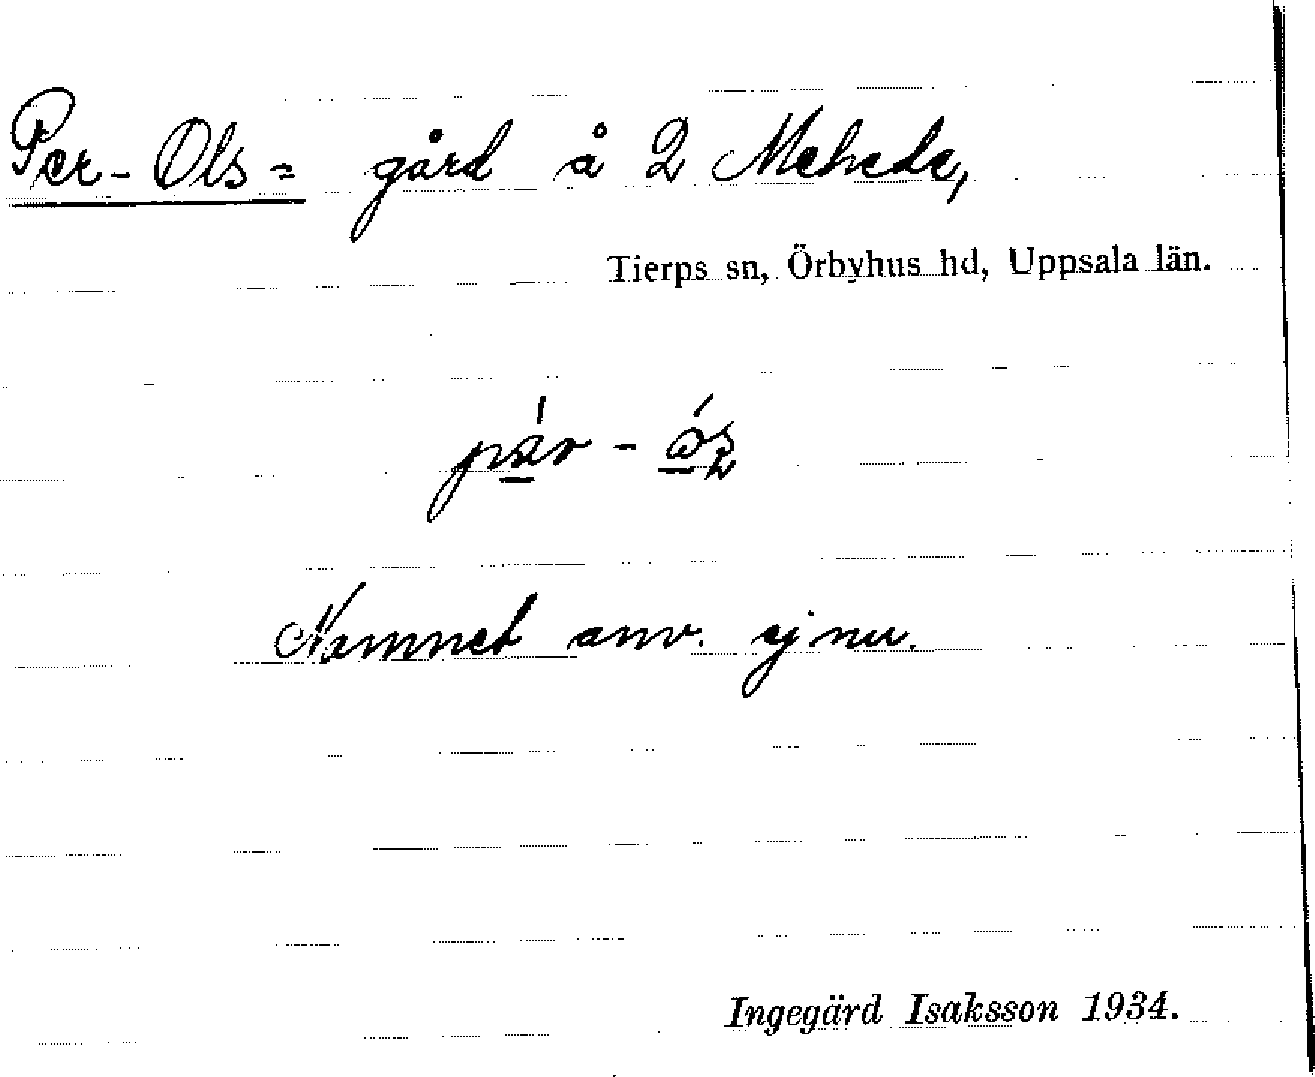 Per-Ols= gård å 2 Mehede,
Tierps sn, Örbyhus hd, Uppsala län.
Namnet anv. ej nu.
Ingegärd Isaksson 1934.